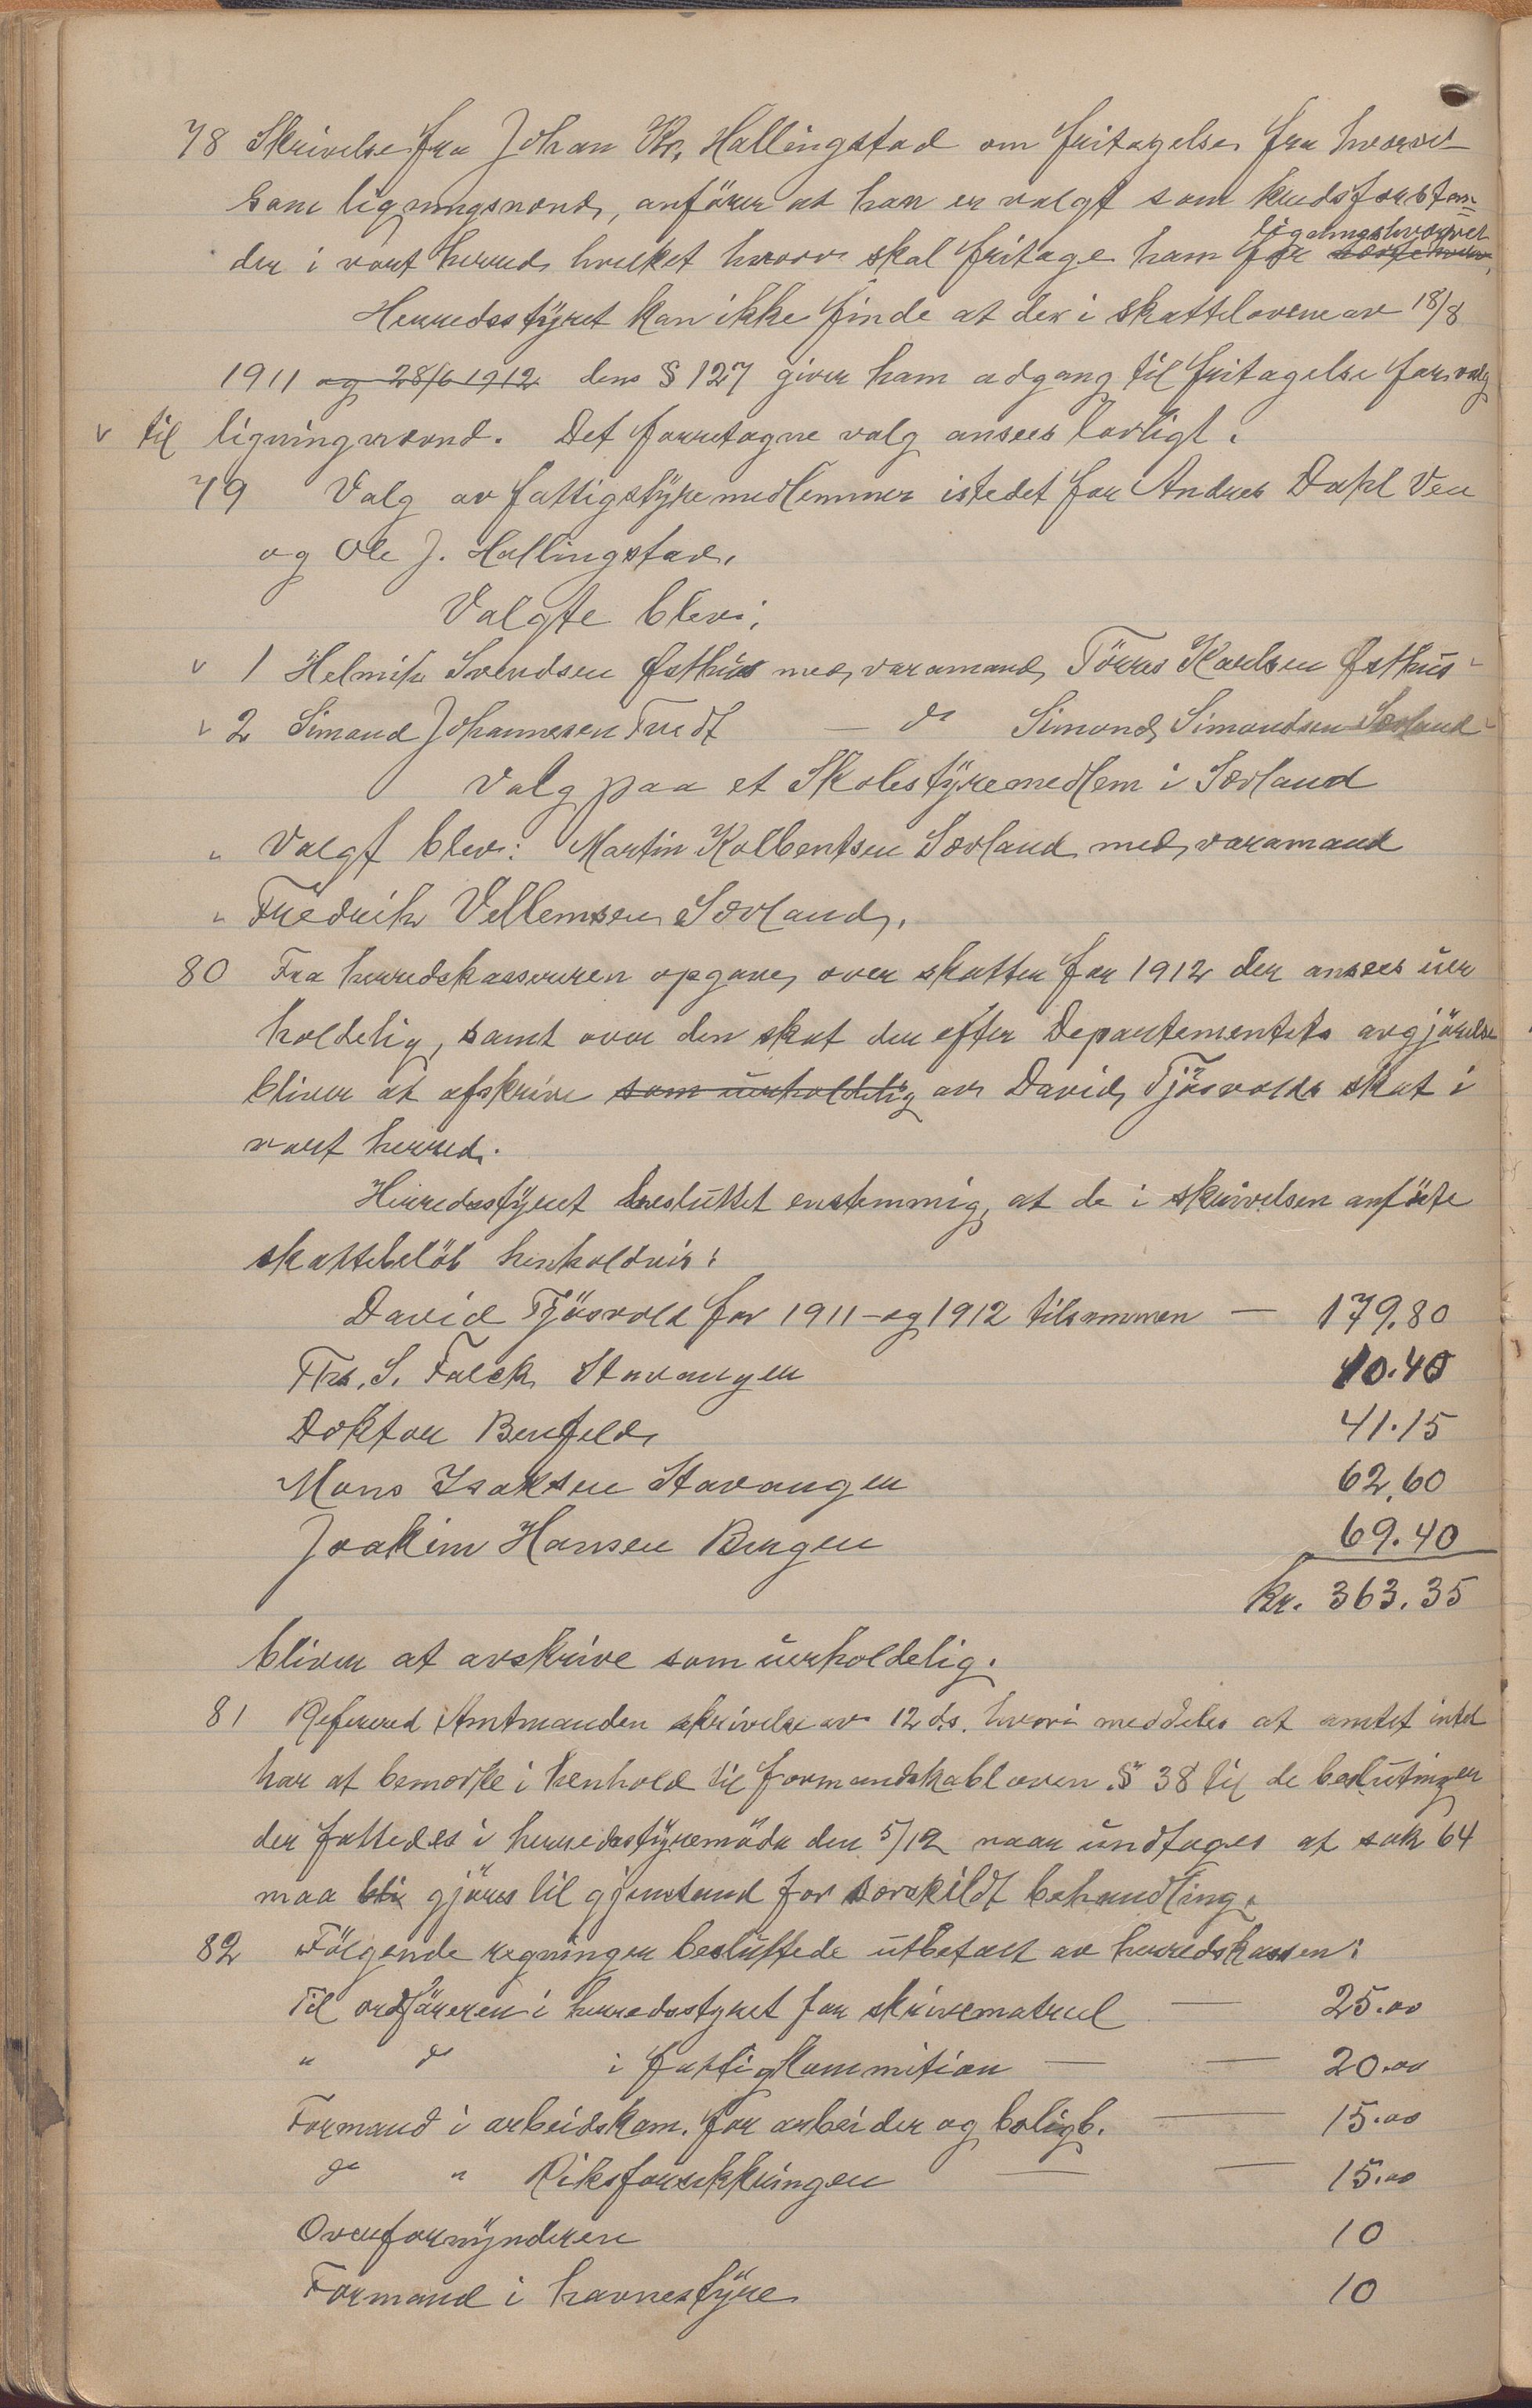 78 Skrivelse fra Johan Kr. Hallingstad om fritagelse fra hvervet
som ligningsnævnd, anförer at han er valgt som kredsforstan=
der i vort herred hvilket hverv skal fritage ham for ligningshvervet
Herredsstÿret kan ikke finde at der i skattelovene av 18/8
1911 og 28/6 1912 dens § 127 giver ham adgang til fritagelse for valg
v til ligningnævnd. Det forretagne valg ansees lovligt.
79 Valg av fattigstÿremedlemmer istedet for Andreas Dahl Vea
og Ole J. Hallingstad.
Valgte blev:
v 1 Helmik Svendsen Østhus med varamand Törres Karlsen Østhus
v 2 Simand Johannesen Tvedt — do Simond Simondsen Sævland
Valg paa et Skolestÿremedlem i Sævland
Valgt blev: Martin Kolbentsen Sævland med varamand
Fredrik Vellemsen Sævland.
80 Fra herredskassereren opgave over skatter for 1912 der ansees uer
holdelig, samt over den skat der efter Departementets avgjörelse
bliver at afskrive som uerholdelig av David Tjösvolds skat i
vort herred.
Herredsstÿret besluttet enstemmig, at de i skrivelsen anförte
skattebelöb henholdvis:
David Tjösvold for 1911 - og 1912 tilsammen — 179.80
Ths. S. Falck Stavanger 10.40
Doktor Benfeld 41.15
Mons Isaksen Stavanger 62.60
Joakim Hansen Bergen 69.40
kr. 363.35
bliver at avskrive som uerholdelig.
81 Referered Amtmanden skrivelse av 12 ds. hvori meddeles at amtet intet
har at bemærke i henhold til formandskabloven § 38 til de beslutninger
der fattedes i herredsstÿremöde den 5/12 naar undtages at sak 64
maa bli gjöres til gjenstand for særskildt behandling.
82 Fölgende regninger besluttede utbetalt av herredskassen:
Til ordföreren i herredsstyret for skrivematriel — 25.00
" do i fattigkommition — — 20.00
Formand i arbeidskom. for arbeider og boligb. — 15.00
do " Riksforsikkringen — — 15.00
Overformÿnderen 10
Formand i havnestÿre 10